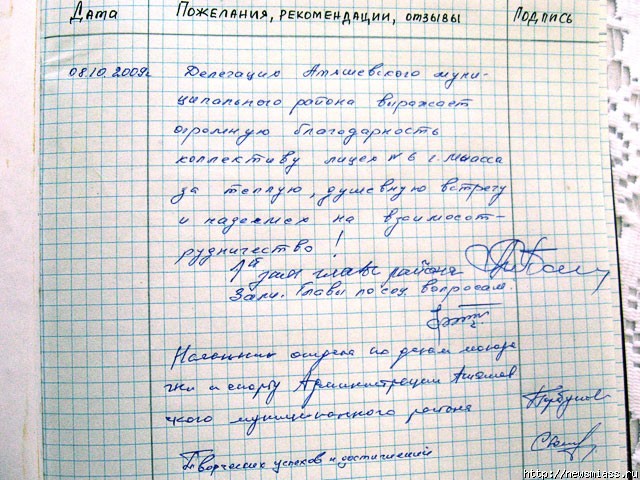 Дата Пожелания, рекомендации, отзывы Подпись
08.10.2009г Делегация Атяшевского муни-
ципального района выражает
огромную благодарность
коллективу лицея №6 г. Миасса
за теплую, душевную встречу
и надеемся на взаимосот-
рудничество!
1й зам главы района
Зам. Главы по соц. вопросам.
Начальник отдела по делам молоде
жи и спорту Администрации Атяшев
ского муниципального района
Творческих успехов и достижений
http://newsmiass.ru